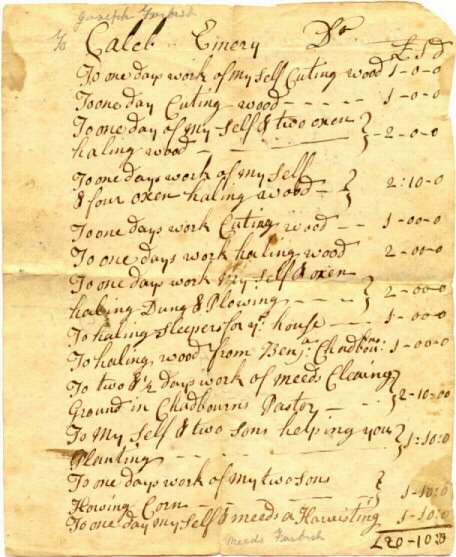 Joseph Furbish
To Caleb Emery Dr.
£ S d
To one days work of my self Cuting wood 1-0-0
To one day Cuting wood - - - - - 1-0-0
To one day of my self & two oxen
haling wood - - - } -2-0-0
To one days work of my self
& four oxen haling wood - } 2:10-0
To one days work Cuting wood - - 1-00-0
To one days work haling wood 2-00-0
To one day work my self & oxen
haling Dung & Plowing - - - - } 2-00-0
To haling sleepers for yr. house - - - 1-00-0
To haling wood from Benja. Chadbns: 1-00-0
To two & ½ days work of meeds Clearing
Ground in Chadbourns Pastor - - } 2-10-00
To My self & two sons helping you
Planting - - - } 1:10:0
To one days work of my two sons
Howing Corn } 1-10:0
To one day my self & meeds a Harvisting 1-10:0
Meeds Furbish
£20-10:0